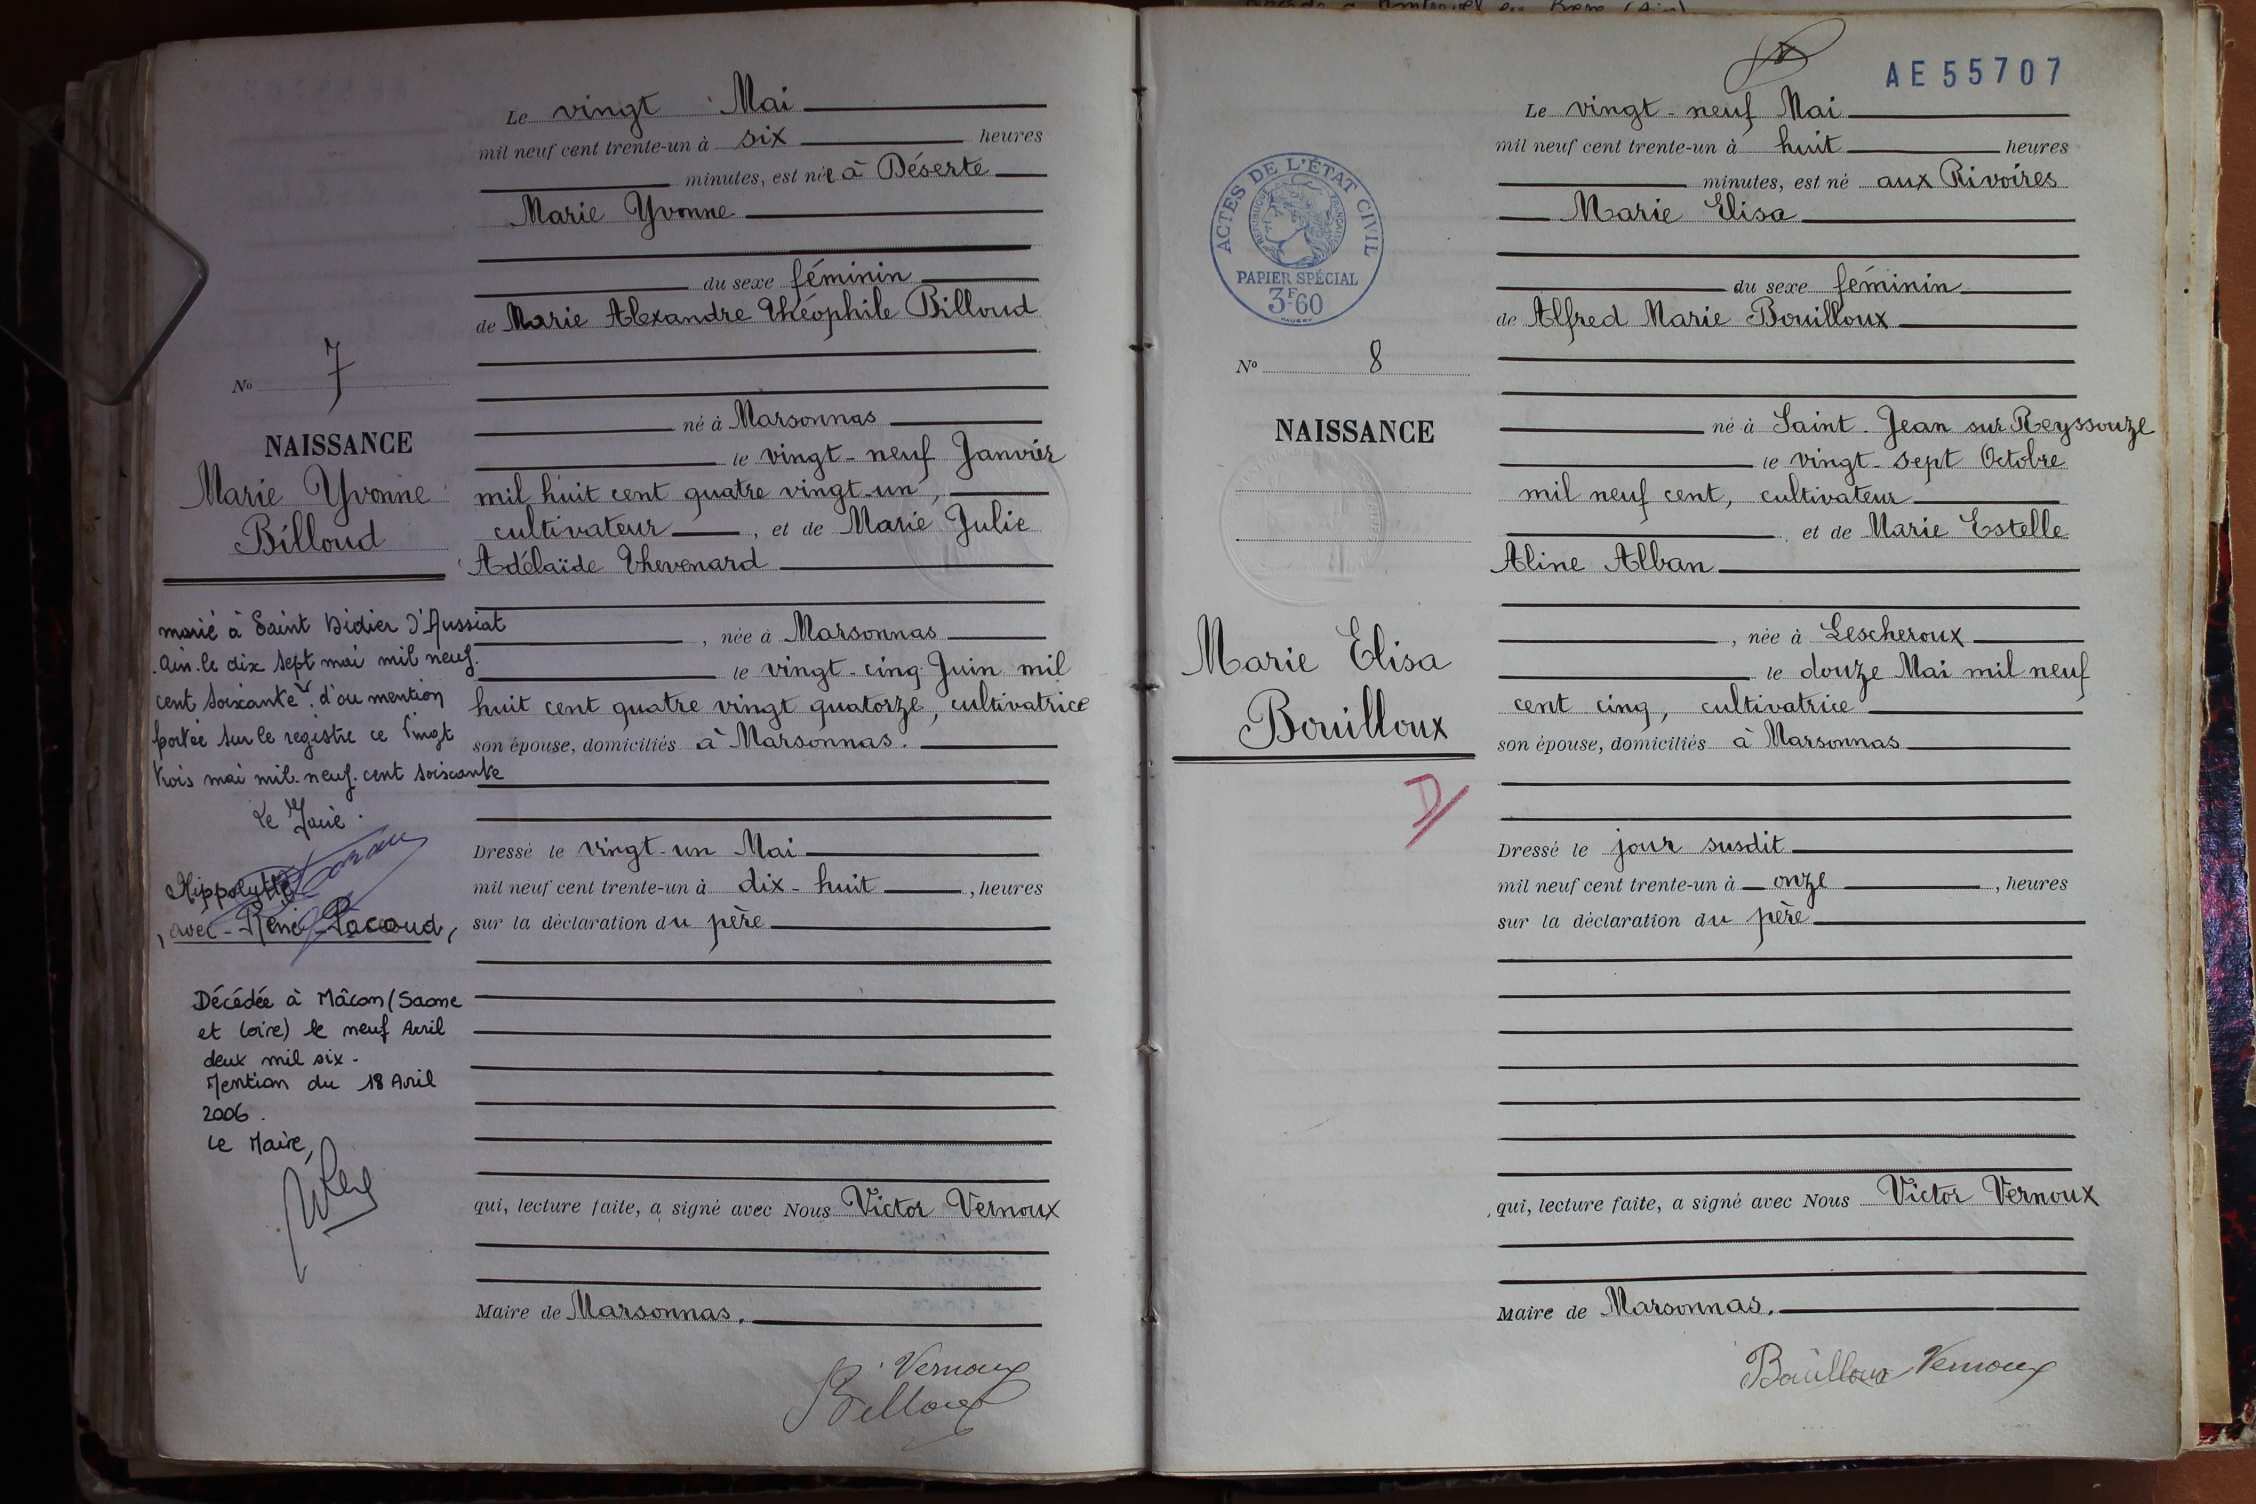 Le vingt Mai
mil neuf cent trente-un à six heures
minutes, est née à Déserte
Marie Yvonne
du sexe féminin
de Marie Alexandre Théophile Billoud
No 7
NAISSANCE
Marie Yvonne
Billoud
né à Marsonnas
le vingt-neuf Janvier
mil huit cent quatre vingt-un,
cultivateur, et de Marie Julie
Adélaïde Thevenard
, née à Marsonnas
le vingt-cinq Juin mil
huit cent quatre vingt quatorze, cultivatrice
son épouse, domiciliés à Marsonnas.
Dressé le vingt-un Mai
mil neuf cent trente-un à dix-huit, heures
sur la déclaration du père
qui, lecture faite, a signé avec Nous Victor Vernoux
Maire de Marsonnas.
Vernoux
Billoud
marié à Saint Didier d'Aussiat
Ain le dix sept mai mil neuf
cent soixante. d'ou mention
portée sur le registre ce vingt
trois mai mil neuf cent soixante
Le Maire.
Hippolyte
, avec René Pacoud,
Décédée à Mâcon (Saone
et Loire) le neuf Avril
deux mil six-
Mention du 18 Avril
2006.
Le Maire,
AE55707
Le vingt-neuf Mai
mil neuf cent trente-un à huit heures
minutes, est né aux Rivoires
Marie Elisa
du sexe féminin
de Alfred Marie Bouilloux
ACTES DE L'ÉTAT CIVIL
RÉPUBLIQUE FRANÇAISE
PAPIER SPÉCIAL
3F60
No 8
NAISSANCE
Marie Elisa
Bouilloux
D
né à Saint-Jean sur Reyssouze
le vingt-sept Octobre
mil neuf cent, cultivateur
et de Marie Estelle
Aline Alban
, née à Lescheroux
le douze Mai mil neuf
cent cinq, cultivatrice
son épouse, domiciliés à Marsonnas
Dressé le jour susdit
mil neuf cent trente-un à onze, heures
sur la déclaration du père
qui, lecture faite, a signé avec Nous Victor Vernoux
Maire de Marsonnas.
Bouilloux Vernoux